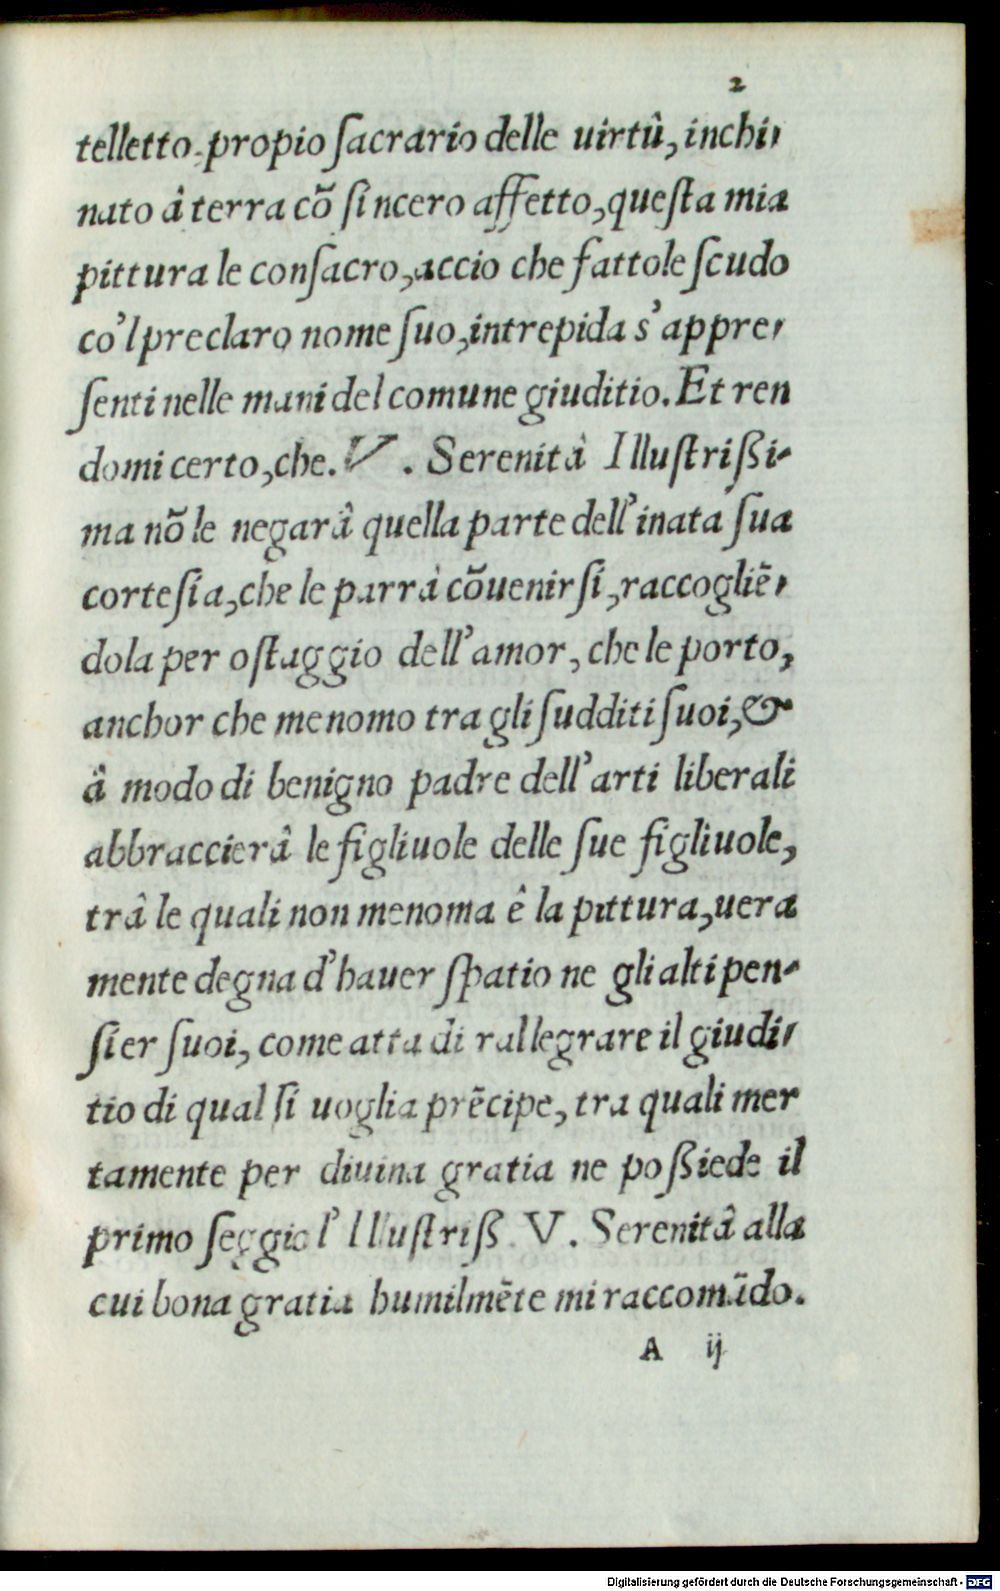 2
telletto, propio ſacrario delle uirtù, inchi-
nato â terra cõ ſincero affetto, queſta mia
pittura le conſacro, accio che fattole ſcudo
co'l preclaro nome ſuo, intrepida s'appre-
ſenti nelle mani del comune giuditio. Et ren
domi certo, che. V. Serenitâ Illuſtriſſi-
ma nõ le negarâ quella parte dell'inata ſua
corteſia, che le parrâ cõuenirſi, raccogliẽ-
dola per oſtaggio dell'amor, che le porto,
anchor che menomo tra gli ſudditi ſuoi, &
â modo di benigno padre dell'arti liberali
abbraccierâ le figliuole delle ſue figliuole,
trâ le quali non menoma ê la pittura, uera
mente degna d'hauer ſpatio ne gli alti pen-
ſier ſuoi, come atta di rallegrare il giudi-
tio di qual ſi uoglia prẽcipe, tra quali mer
tamente per diuina gratia ne poſſiede il
primo ſeggio l'Illuſtriſſ. V. Serenitâ alla
cui bona gratia humilmẽte mi raccomãdo.
A ij
Digitalisierung gefördert durch die Deutsche Forschungsgemeinschaft - DFG